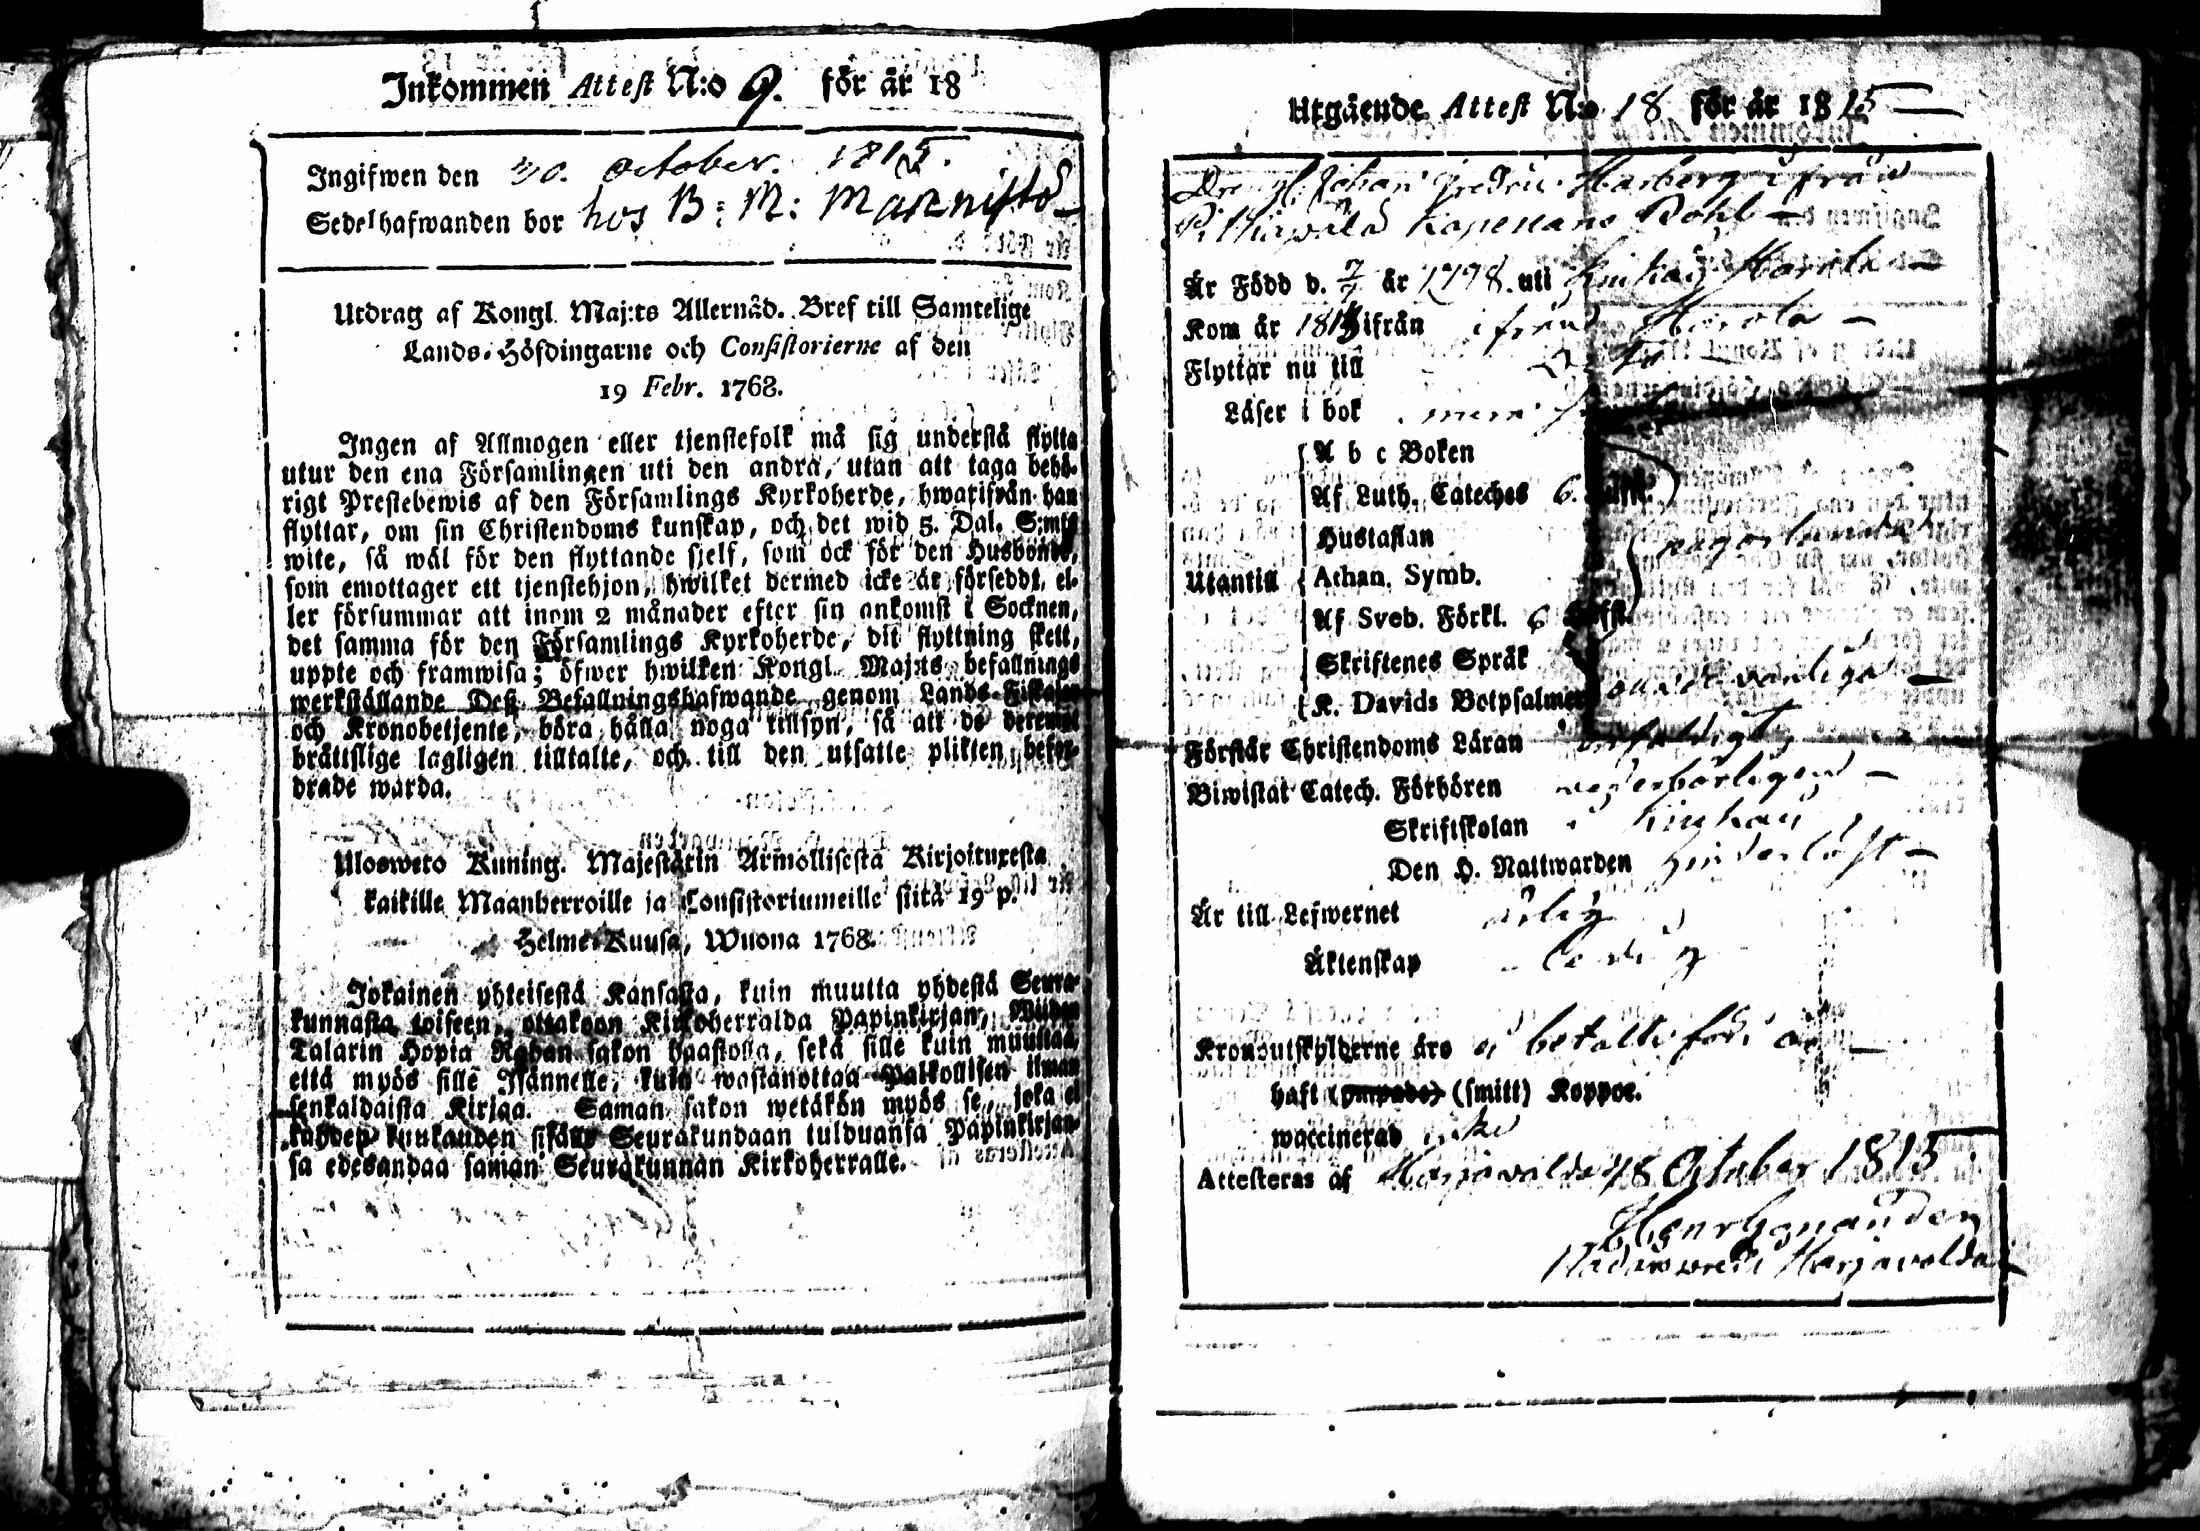 Inkommen Attest N:o 9. för år 18
Ingifwen den 30. October. 1815.
Sedelhafwanden bor hos B: M: Mannisto
Utdrag af Kongl. Maj:ts Allernåd. Bref till Samtelige
Lands-Höfdingarne och Consistorierne af den
19 Febr. 1768.
Ingen af Allmogen eller tjenstefolk må sig understå flytta
utur den ena Församlingen uti den andra, utan att taga behö-
rigt Prestebewis af den Församlings Kyrkoherde, hwarifrån han
flyttar, om sin Christendoms kunskap, och det wid 5. Dal. S:mts
wite, så wäl för den flyttande sjelf, som ock för den Husbonde,
som emottager ett tjenstehjon, hwilket dermed icke är försedt, el-
ler försummar att inom 2 månader efter sin ankomst i Socknen,
det samma för den Församlings Kyrkoherde, dit flyttning skett,
uppte och framwisa; öfwer hwilken Kongl. Maj:ts befallnings
werkställande Deß Befallningshafwande genom Lands-Fiskaler
och Kronobetjente, böra hålla noga tillsyn, så att de deremot
bråttslige lagligen tilltalte, och till den utsatte plikten befor-
drade warda.
Uloswetο Kuning. Majestätin Armollisesta Kirjoituxesta
kaikille Maanherroille ja Consistoriumeille siitä 19 p.
Helme-Kuusa, Wuona 1768.
Jokainen yhteisestä Kansasta, kuin muutta yhdestä Seura-
kunnasta toiseen, ottakoon Kirkoherralda Papinkirjan, Wiiden
Talarin Hopia Rahan sakon haastolla, sekä sille kuin muuttaa,
että myös sille Isännelle, kuin wastanottaa Palkollisen ilman
senkaldaista Kirjaa. Saman sakon wetäkön myös se, joka ei
kahden kuukauden sisälle Seurakundaan tulduansa Papinkirjan-
sa edesandaa saman Seurakunnan Kirkoherralle.
Utgående Attest N:o 18 för år 1815
Dreng. Johan Fredric Harberg ifrån
Kapellans Bohl
Är Född d. 7/7 år 1798. uti Kiukais
Kom år 181 ifrån ifrån
Flyttar nu till
Läser i bok
A b c Boken
Af Luth. Cateches 6. Hufst.
Hustaflan
Utantill Athan. Symb. någorlunda
Af Sveb. Förkl. 6 Hufst.
Skriftenes Språk
K. Davids Botpsalmer vanliga
Förstår Christendoms Läran enfaldigt
Biwistat Catech. Förhören wederbörligen
Skriftskolan i Kiukais
Den H. Nattwarden
Är till Lefwernet ärlig
Äktenskap ledig
Kronoutskylderne äro betalte för
haft (ympade) (smitt) Koppor.
waccinerad icke
Attesteras af Harjavalda 18 October 1815
Henr Gonanden
Harjavalda